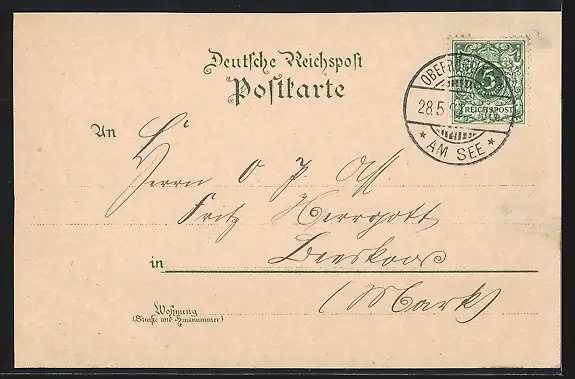 Deutsche Reichspost
Postkarte
5
REICHSPOST
28.5
* AM SEE *
An
Herrn O P
Fritz Herrgott
in Beeskow
(Mark)
Wohnung
(Straße und Hausnummer)